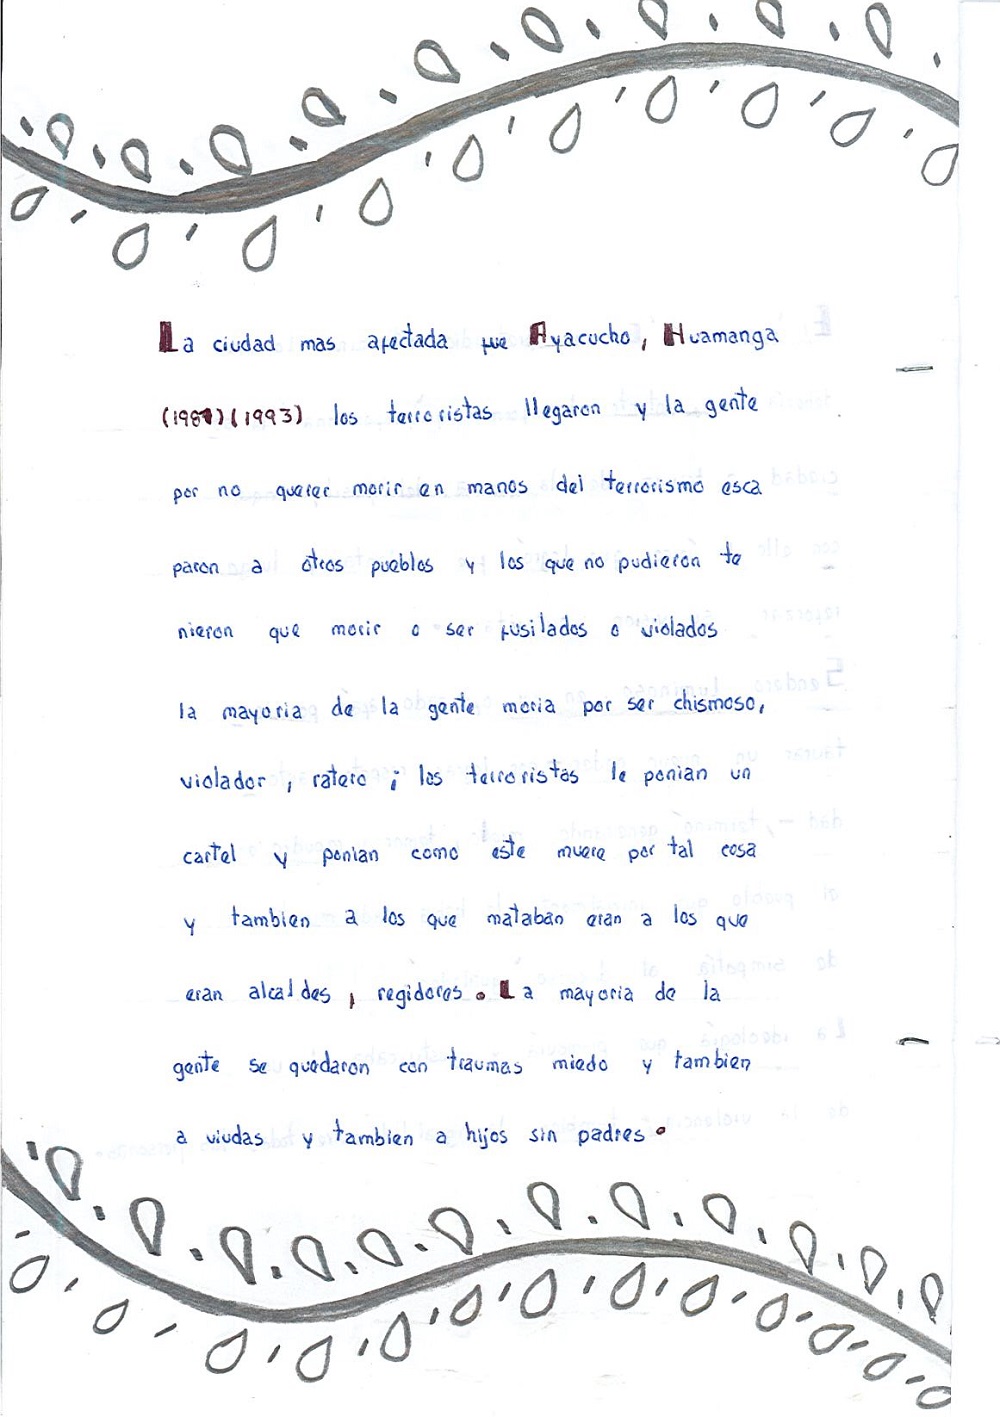 La ciudad mas afectada fue Ayacucho, Huamanga
(1981)(1993) los terroristas llegaron y la gente
por no querer morir en manos del terrorismo esca
paron a otros pueblos y los que no pudieron te
nieron que morir o ser fusilados o violados
la mayoria de la gente moria por ser chismoso,
violador, ratero ; los terroristas le ponian un
cartel y ponian como este muere por tal cosa
y tambien a los que mataban eran a los que
eran alcaldes, regidores. La mayoria de la
gente se quedaron con traumas miedo y tambien
a viudas y tambien a hijos sin padres.